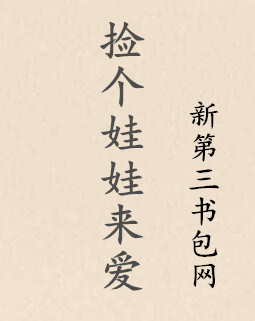 捡个娃娃来爱
新第三书包网